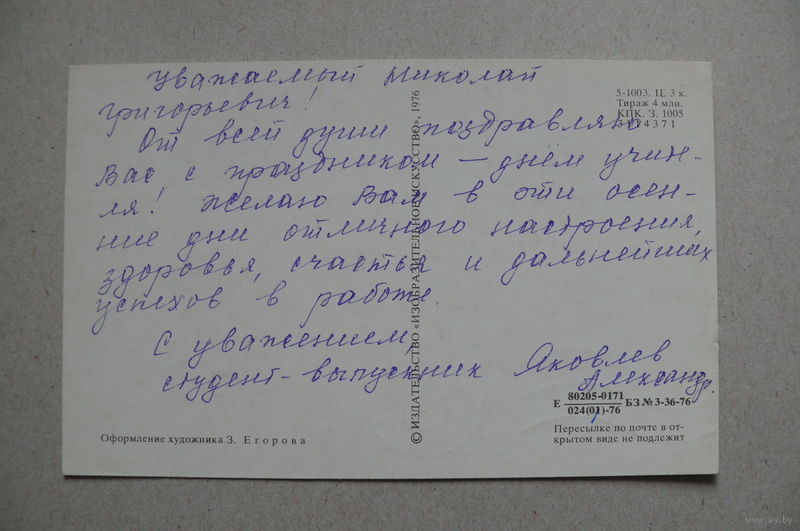 Уважаемый Николай
Григорьевич!
От всей души поздравляю
Вас с праздником – днём учи-
ля! Желаю Вам в эти осен-
ние дни отличного настроения,
здоровья, счастья и дальнейших
успехов в работе.
С уважением,
студент-выпускник Яковлев
Александр.
5-1003. Ц. 3 к.
Тираж 4 млн.
КПК. З. 1005
© ИЗДАТЕЛЬСТВО «ИЗОБРАЗИТЕЛЬНОЕ ИСКУССТВО», 1976
Е 80205-0171
024(01)-76 БЗ № 3-36-76
Оформление художника З. Егорова
Пересылке по почте в от-
крытом виде не подлежит
www.ay.by